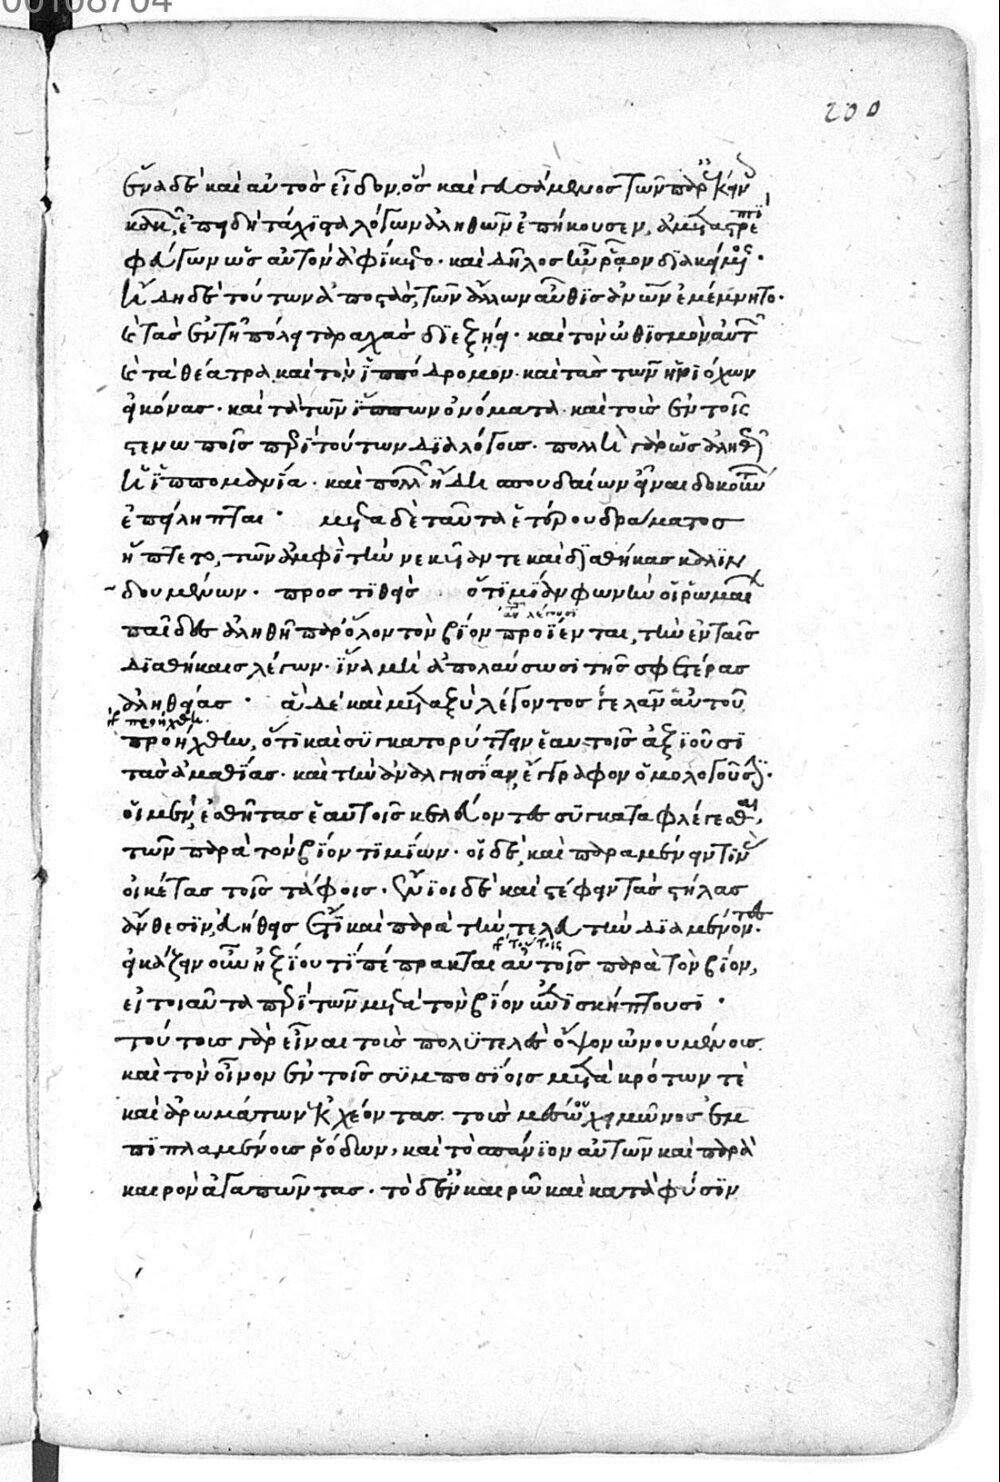 00108704
200
ἕνα δὲ καὶ αὐτὸς εἶδον, ὃς καὶ γευσάμενος τῶν παρ' ἐκείνου
κακῶν, ἐπειδὴ τάχιστα λόγων ἀληθῶν ἐπήκουσεν, ἀμεταστρεπτὶ
φεύγων ὡς αὐτὸν ἀφίκετο. καὶ δῆλος ἦν ῥᾷον διακείμενος.
ἤδη δὲ τούτων ἀποστὰς, τῶν ἄλλων αὖθις ἀνθρώπων ἐμέμνητο.
καὶ τὰς ἐν τῇ πόλει ταραχὰς διεξῄει. καὶ τὸν ὠθισμὸν αὐτῶν
καὶ τὰ θέατρα καὶ τὸν ἱππόδρομον. καὶ τὰς τῶν ἡνιόχων
εἰκόνας. καὶ τὰ τῶν ἵππων ὀνόματα. καὶ τοὺς ἐν τοῖς
στενωποῖς περὶ τούτων διαλόγους. πολλὴ γὰρ ὡς ἀληθῶς
ἡ ἱππομανία. καὶ πολλῶν ἤδη σπουδαίων εἶναι δοκούντων
ἐπείληπται. μετὰ δὲ ταῦτα ἑτέρου δράματος
ἥπτετο, τῶν ἀμφὶ τὴν νέκυιάν τε καὶ διαθήκας καλιν
δουμένων. προστιθεὶς ὅτι μίαν φωνὴν οἱ ῥωμαίων
ἂν λέγουσι
παῖδες ἀληθῆ παρ' ὅλον τὸν βίον προΐενται, τὴν ἐν ταῖς
διαθήκαις λέγων. ἵνα μὴ ἀπολαύσωσι τῆς σφετέρας
ἀληθείας. ἃ δὲ καὶ μεταξὺ λέγοντος γελᾶν αὐτοῦ
προήχθην.
προήχθην, ὅτι καὶ συγκατορύττειν ἑαυτοῖς ἀξιοῦσι
τὰς ἀμαθίας. καὶ τὴν ἀναλγησίαν ἔγγραφον ὁμολογοῦσι.
οἱ μὲν, ἐσθῆτας ἑαυτοῖς κελεύοντες συγκαταφλέγεσθαι,
τῶν παρὰ τὸν βίον τιμίων. οἱ δὲ, καὶ παραμένειν τινὰς
οἰκέτας τοῖς τάφοις. ἔνιοι δὲ καὶ στέφειν τὰς στήλας
ἄνθεσιν, εὐήθεις ἔτι καὶ παρὰ τὴν τελευτὴν διαμένοντες.
εἰκάζειν οὖν ἠξίου τί πέπρακται αὐτοῖς παρὰ τὸν βίον,
τούτοις
εἰ τοιαῦτα περὶ τῶν μετὰ τὸν βίον ἐπισκήπτουσι.
τούτους γὰρ εἶναι τοὺς πολυτελὲς ὄψον ὠνουμένους
καὶ τὸν οἶνον ἐν τοῖς συμποσίοις μετὰ κρότων τὲ
καὶ ἀρωμάτων ἐκχέοντας. τοὺς μέσου χειμῶνος ἐμ
πιπλαμένους ῥόδων, καὶ τὸ σπάνιον αὐτῶν καὶ παρὰ
καιρὸν ἀγαπῶντας. τῶν δ' ἐν καιρῷ καὶ κατὰ φύσιν